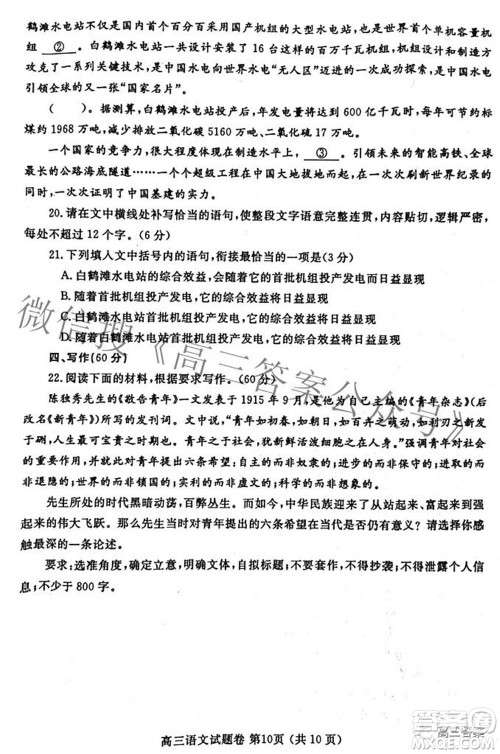 鹤滩水电站不仅是国内首个百分百采用国产机组的大型水电站，也是世界首个单机容量机
组 ② 。白鹤滩水电站一共设计安装了 16 台这样的百万千瓦机组，机组设计和制造方
攻克了一系列关键技术，是中国水电向世界水电“无人区”迈进的一次成功探索，是中国水电
引领全球的又一张“国家名片”。
（ ）。据测算，白鹤滩水电站投产后，年发电量将达到 600 亿千瓦时，每年可节约标
煤约 1968 万吨，减少排放二氧化碳 5160 万吨、二氧化硫 17 万吨。
一个国家的竞争力，很大程度体现在制造水平上， ③ 。引领未来的智能高铁、全球
最长的公路海底隧道……一个个超级工程在中国大地拔地而起，在一次次刷新世界纪录的
同时，一次次证明了中国基建的实力。
20. 请在文中横线处补写恰当的语句，使整段文字语意完整连贯，内容贴切，逻辑严密，
每处不超过 12 个字。（6 分）
21. 下列填入文中括号内的语句，衔接最恰当的一项是（3 分）
A. 白鹤滩水电站的综合效益，会随着首批机组投产发电而日益显现
B. 随着首批机组投产发电，它的综合效益将日益显现
C. 白鹤滩水电站首批机组投产发电，它的综合效益将日益显现
D. 随着首批机组投产发电，它的综合效益将日益显现
四、写作（60 分）
22. 阅读下面的材料，根据要求写作。（60 分）
陈独秀先生的《敬告青年》一文发表于 1915 年 9 月，是其为自己主编的《青年杂志》（后
改名《新青年》）所写的发刊词。文中说，“青年如初春，如朝日，如百卉之萌动，如利刃之新发
于硎，人生最可宝贵之时期也。青年之于社会，犹新鲜活泼细胞之在人身。”强调了青年对
国家兴亡、民族盛衰的重要作用，并向青年提出六条希望：自主的而非奴隶的；进步的而非
保守的；进取的而非退隐的；世界的而非锁国的；实利的而非虚文的；科学的而非想象的。
先生所处的时代黑暗动荡，百弊丛生。而今天，中华民族迎来了从站起来、富起来到强
起来的伟大飞跃。那么先生当时对青年提出的六条希望在当代是否仍有意义？请选择你感
触最深的一条论述。
要求：选准角度，确定立意，明确文体，自拟标题；不要套作，不得抄袭；不得泄露个人信
息；不少于 800 字。
高三语文试题卷 第10页（共 10 页）
微信搜《高三答案公众号》
高三答案